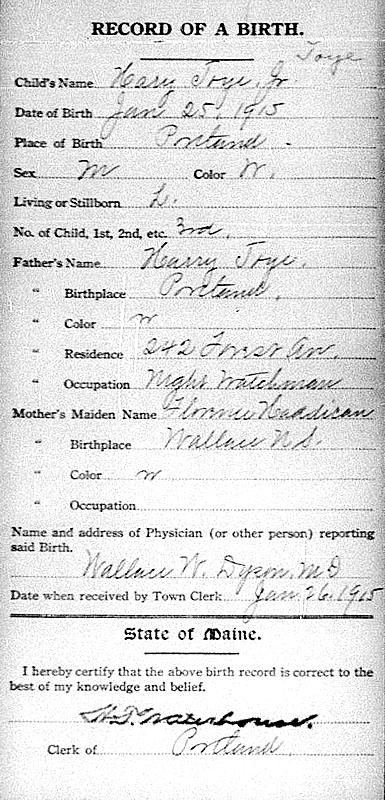 RECORD OF A BIRTH.
Toye
Child's Name Harry Toye, Jr.
Date of Birth Jan 25, 1915
Place of Birth Portland -
Sex M Color W.
Living or Stillborn L.
No. of Child, 1st, 2nd, etc. 3rd.
Father's Name Harry Toye.
" Birthplace Portland.
" Color w
" Residence 242 Forest Av.
" Occupation Night Watchman
Mother's Maiden Name Florence
" Birthplace Wallace N S.
" Color w
" Occupation
Name and address of Physician (or other person) reporting
said Birth.
Wallace W. Dyson, MD
Date when received by Town Clerk Jan. 26, 1915
State of Maine.
I hereby certify that the above birth record is correct to the
best of my knowledge and belief.
Waterhouse.
Clerk of Portland.